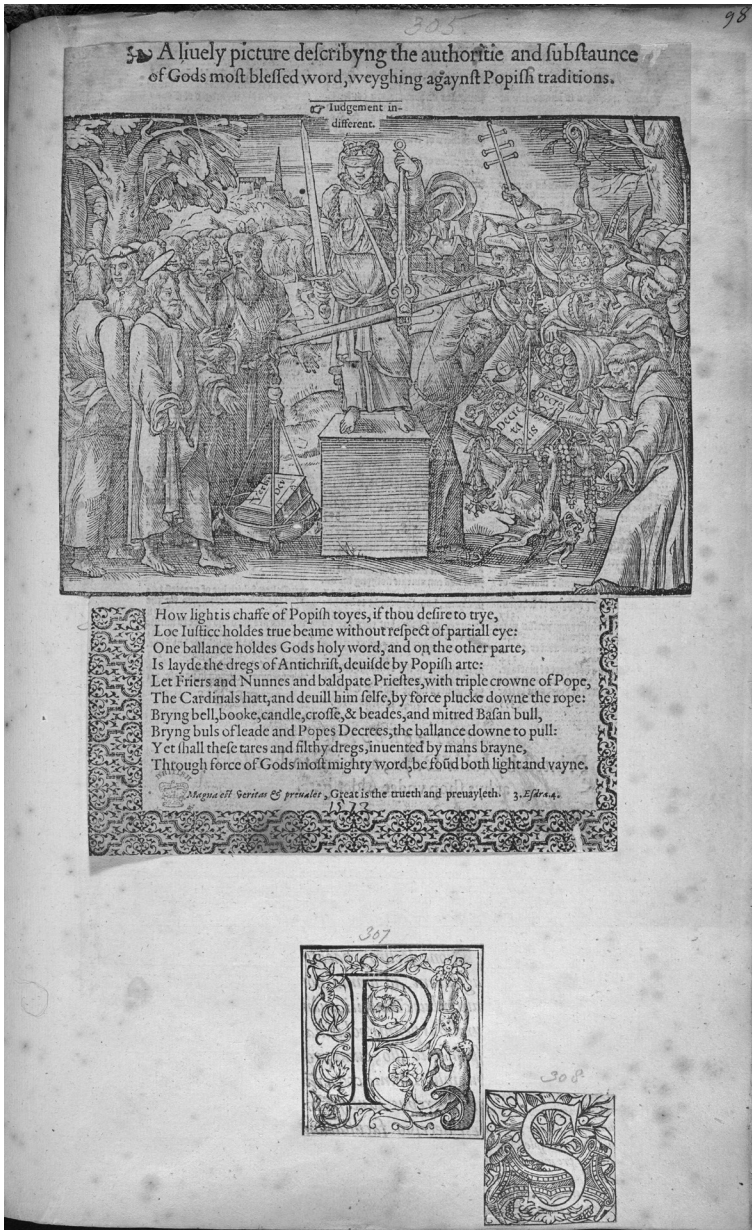 305
98
A liuely picture deſcribyng the authoritie and ſubſtaunce
of Gods moſt bleſſed word, weyghing agaynſt Popiſh traditions.
☞ Iudgement in-
different.
Verbū
Dei
Decre
ta
lis
Decre
How light is chaffe of Popiſh toyes, if thou deſire to trye,
Loe Iuſtice holdes true beame without reſpect of partiall eye:
One ballance holdes Gods holy word, and on the other parte,
Is layde the dregs of Antichriſt, deuiſde by Popiſh arte:
Let Friers and Nunnes and baldpate Prieſtes, with triple crowne of Pope,
The Cardinals hatt, and deuill him ſelfe, by force plucke downe the rope:
Bryng bell, booke, candle, croſſe, & beades, and mitred Baſan bull,
Bryng buls of leade and Popes Decrees, the ballance downe to pull:
Yet ſhall theſe tares and filthy dregs, inuented by mans brayne,
Through force of Gods moſt mighty word, be foūd both light and vayne.
Magna eſt veritas & preualet, Great is the trueth and preuayleth. 3. Eſdræ. 4.
1573
307
P
308
S